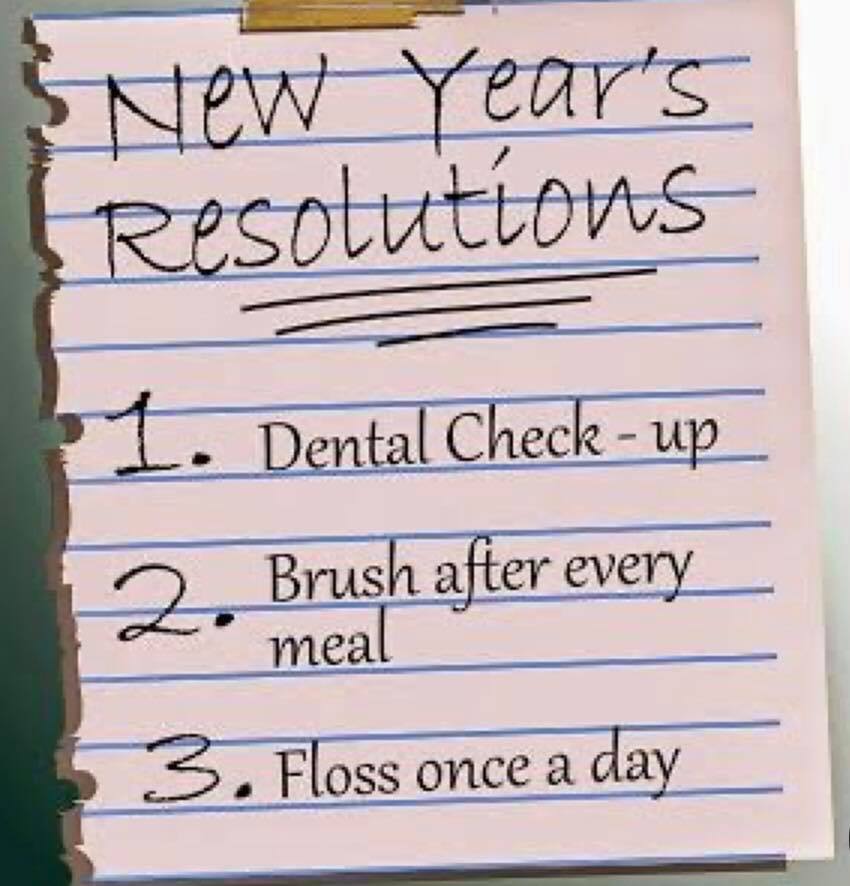 New Year's
Resolutions
1. Dental Check - up
2. Brush after every
meal
3. Floss once a day